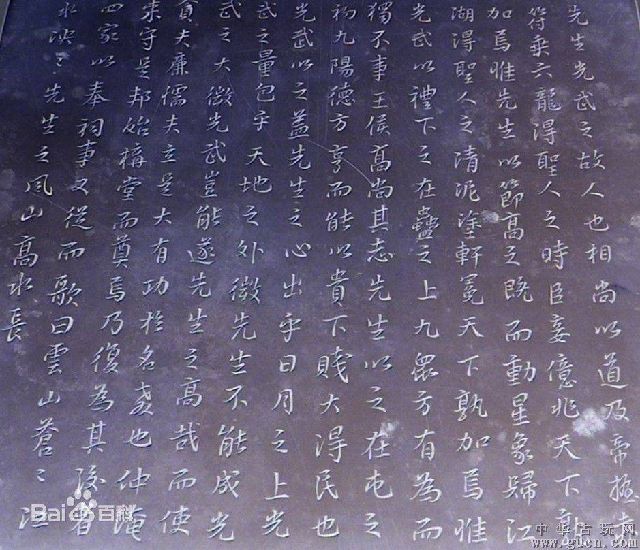 先生光武之故人也相尚以道及帝握赤
符乘六龍得聖人之時臣妾億兆天下孰
加焉惟先生以節高之既而動星象歸江
湖得聖人之清泥塗軒冕天下孰加焉惟
光武以禮下之在蠱之上九眾方有為而
獨不事王侯高尚其志先生以之在屯之
初九陽德方亨而能以貴下賤大得民也
光武以之蓋先生之心出乎日月之上光
武之量包乎天地之外微先生不能成光
武之大微光武豈能遂先生之高哉而使
貪夫廉懦夫立是大有功於名教也仲淹
來守是邦始構堂而奠焉乃復為其後者
四家以奉祠事又從而歌曰雲山蒼〻江
水泱〻先生之風山高水長
Bai百科
中华古玩网
www.gucn.com